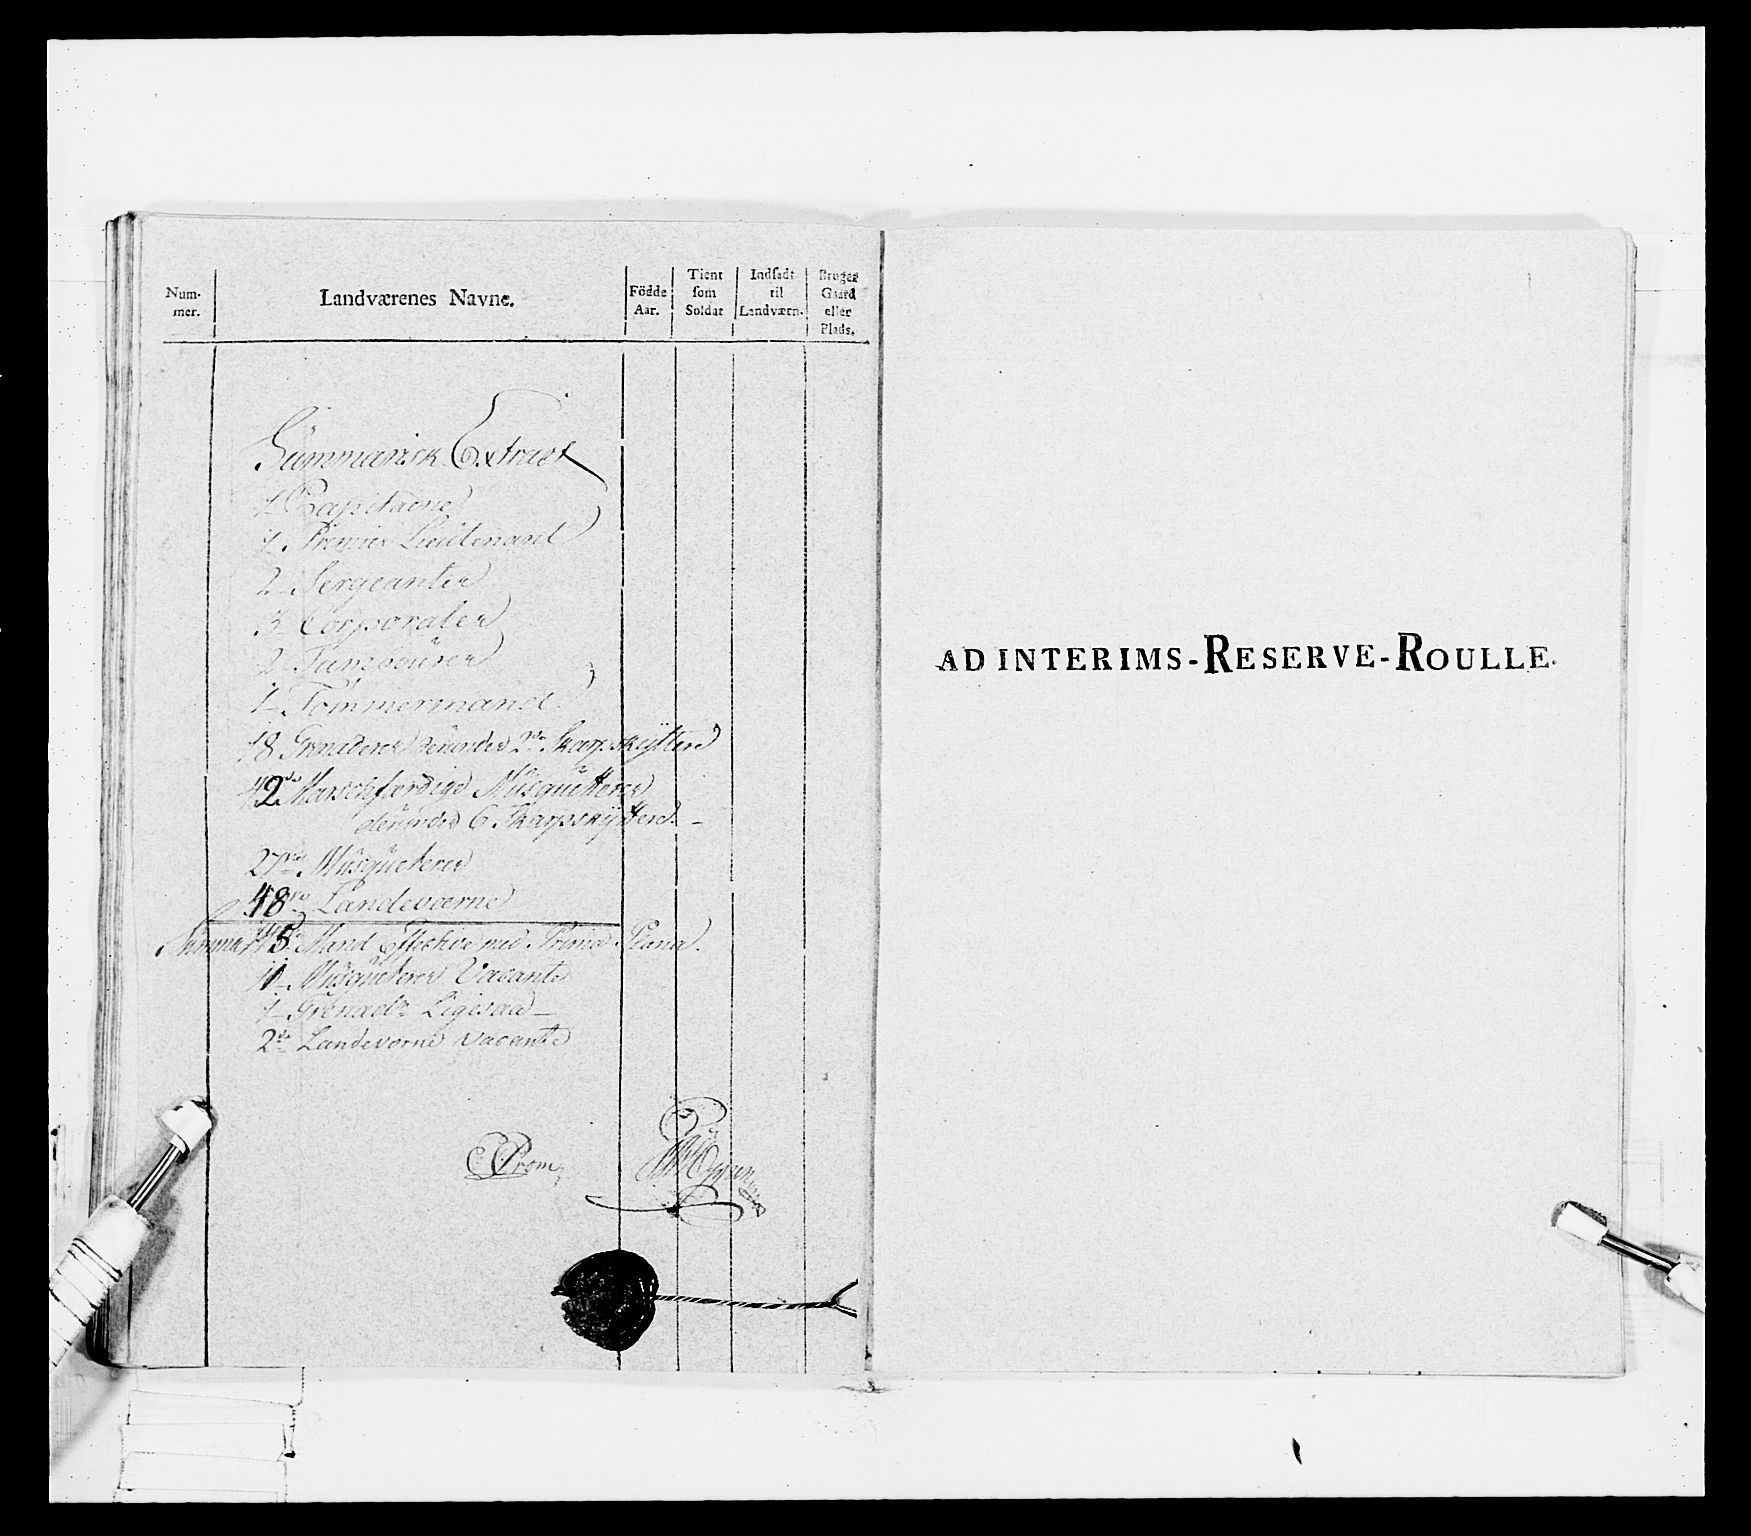 Num-
mer.
Landværenes Navne.
Födde
Aar.
Tient
som
Soldat
Indsadt
til
Landværn.
Bruger
Gaard
eller
Plads.
Summarisk Extract
1 Capitaine
1 Premier Lieutenant
2 Sergeanter
3 Corporaler
2 Tambourer
1 Tömmermand
18 Grenaderer derunder 2de Skarpskyttere
42de Marschfærdige Musqueterer
derunder 6 Skarpskyttere
27 Musqueterer
18 Landeværne
Summa 115 Mand Effective med Prima Plana.
11 Musqueterer Vacante
1 Grenader Ligesaa
2de Landeværne vacante
AD INTERIMS-RESERVE-ROULLE.